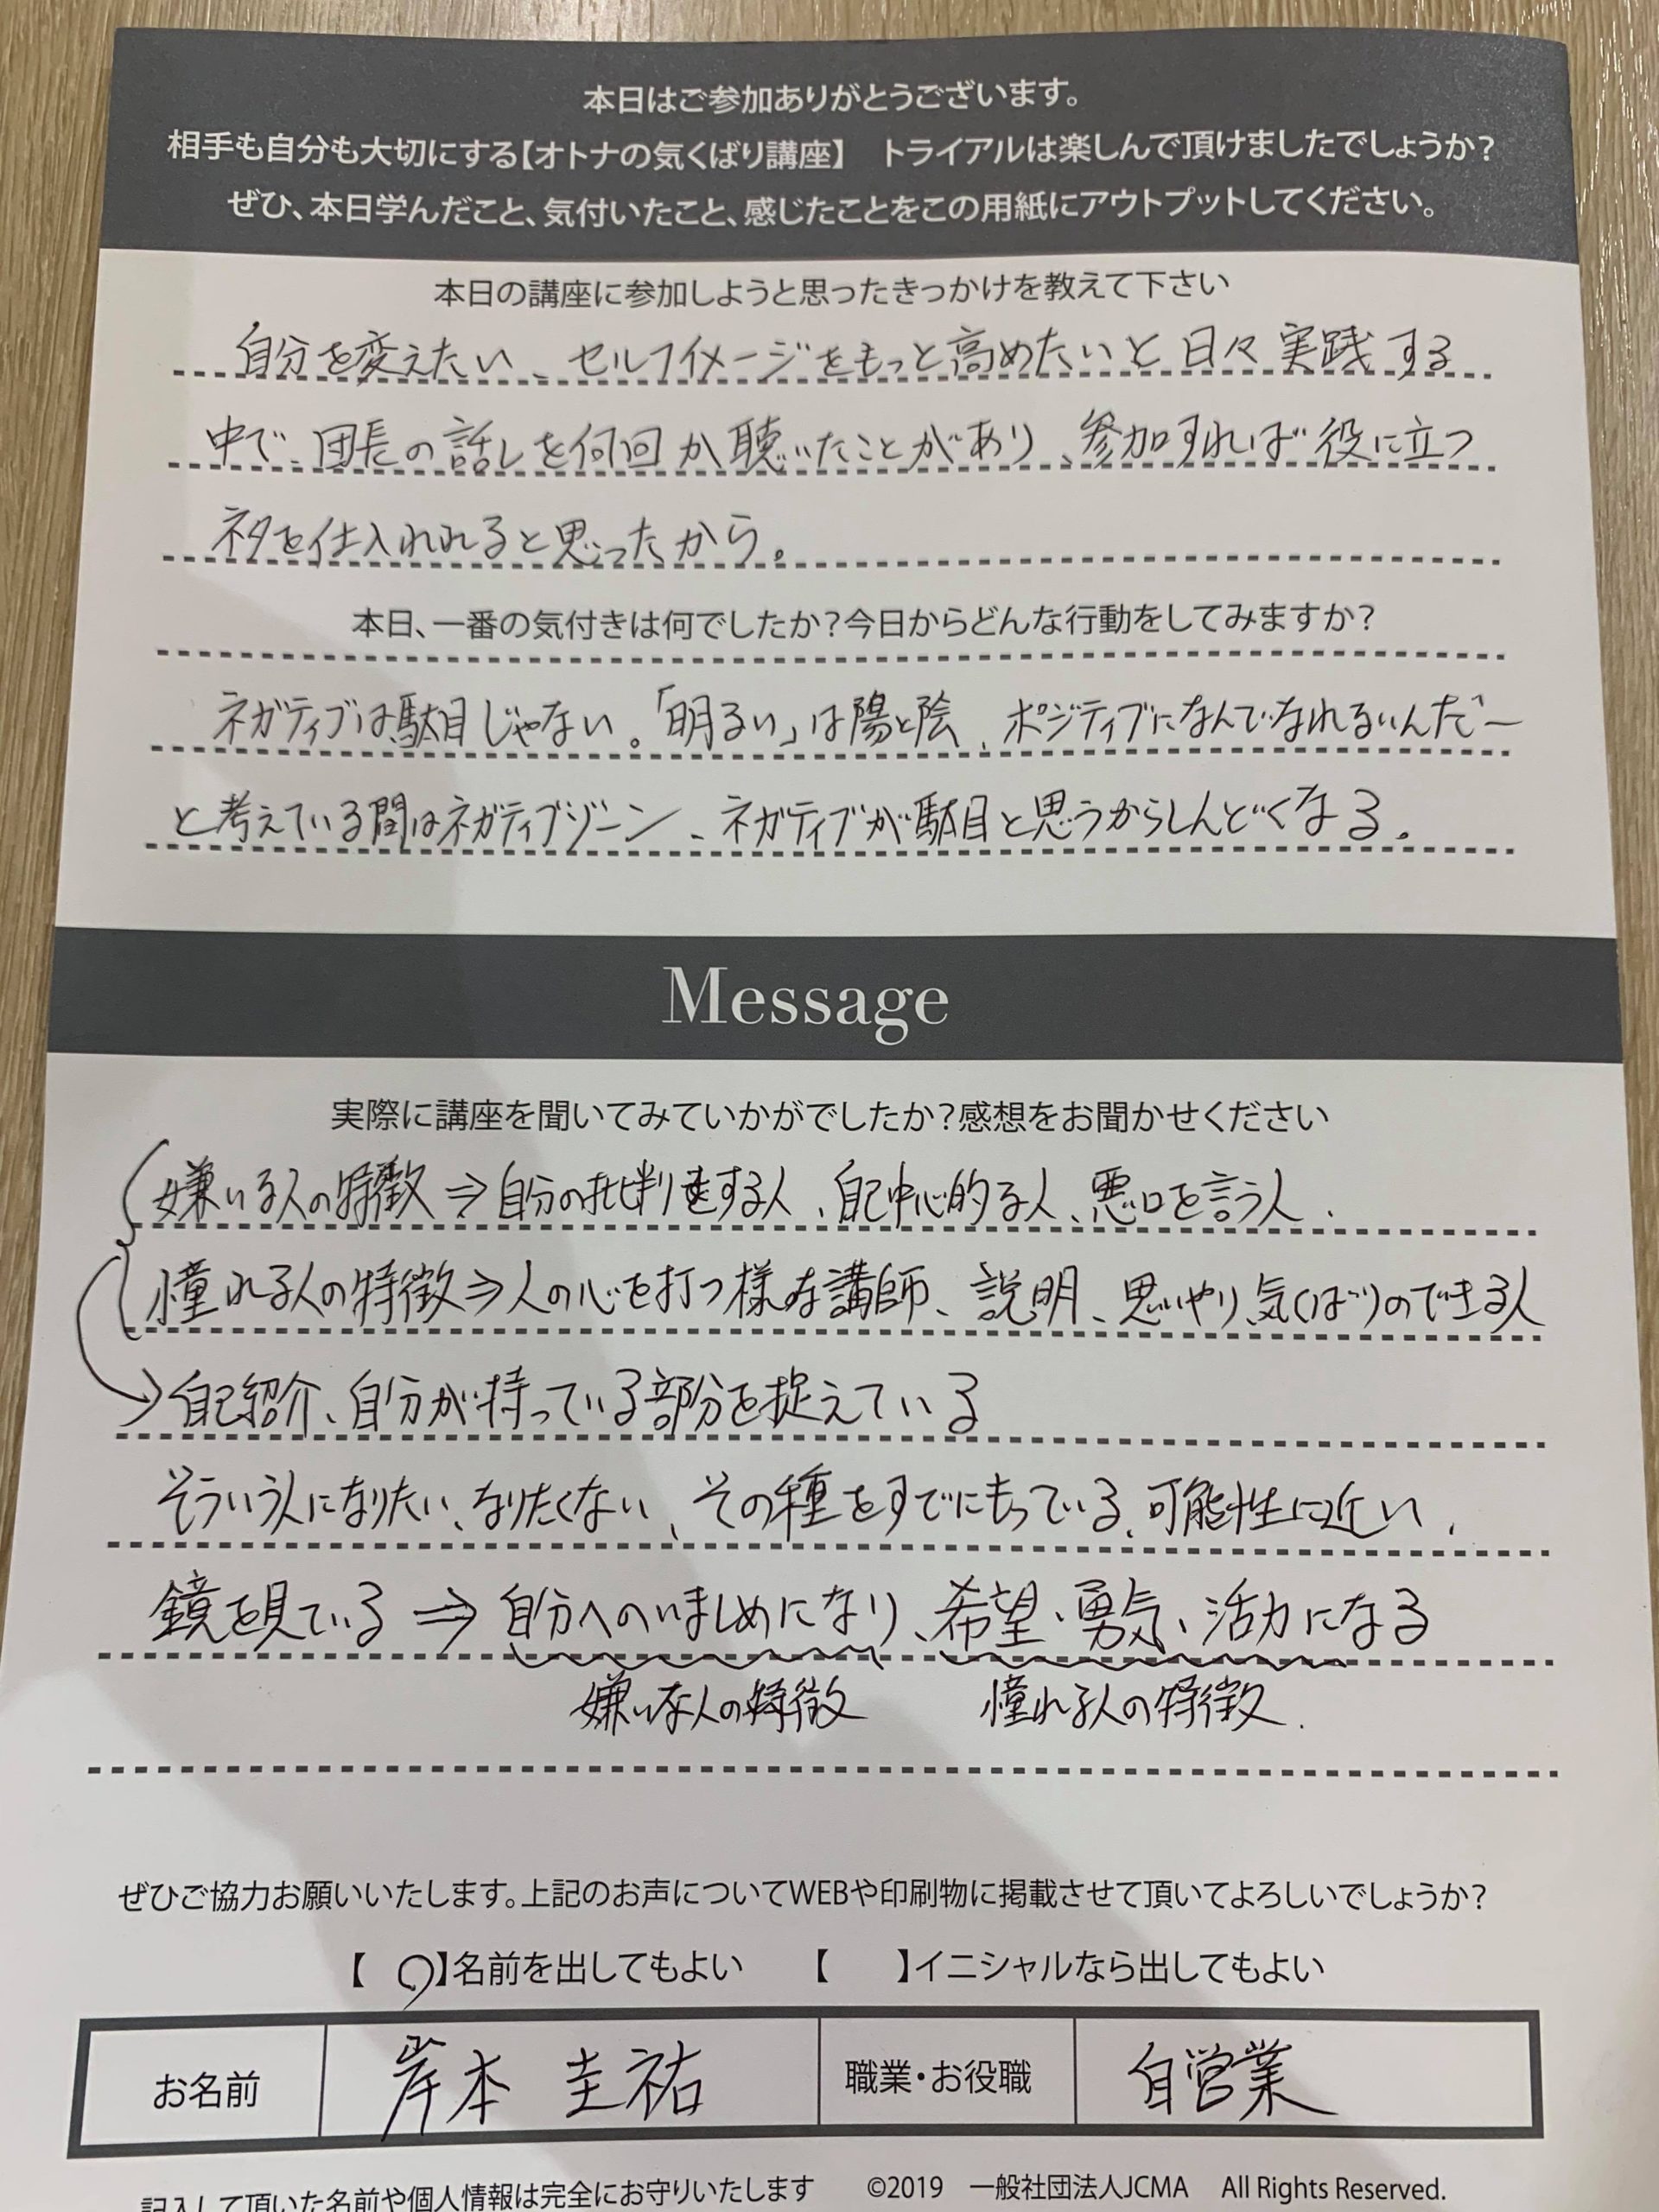 本日はご参加ありがとうございます。
相手も自分も大切にする【オトナの気くばり講座】　トライアルは楽しんで頂けましたでしょうか？
ぜひ、本日学んだこと、気付いたこと、感じたことをこの用紙にアウトプットしてください。
本日の講座に参加しようと思ったきっかけを教えて下さい
自分を変えたい、セルフイメージをもっと高めたいと日々実践する
中で、団長の話しを何回か聴いたことがあり、参加すれば役に立つ
ネタを仕入れれると思ったから。
本日、一番の気付きは何でしたか？今日からどんな行動をしてみますか？
ネガティブは駄目じゃない。「明るい」は陽と陰、ポジティブになんでなれないんだ〜
と考えている間はネガティブゾーン、ネガティブが駄目と思うからしんどくなる。
Message
実際に講座を聞いてみていかがでしたか？感想をお聞かせください
嫌いな人の特徴⇒自分の批判をする人、自己中心的な人、悪口を言う人.
憧れる人の特徴⇒人の心を打つ様な講師、説明、思いやり、気くばりのできる人
→自己紹介、自分が持っている部分を捉えている
そういう人になりたい、なりたくない、その種をすでにもっている、可能性に近い.
鏡を見ている⇒自分へのいましめになり、希望、勇気、活力になる
嫌いな人の特徴　憧れる人の特徴.
ぜひご協力お願いいたします。上記のお声についてWEBや印刷物に掲載させて頂いてよろしいでしょうか？
【 ○ 】名前を出してもよい　【　】イニシャルなら出してもよい
お名前　岸本 圭祐　職業・お役職　自営業
記入して頂いた名前や個人情報は完全にお守りいたします　©2019　一般社団法人JCMA　All Rights Reserved.